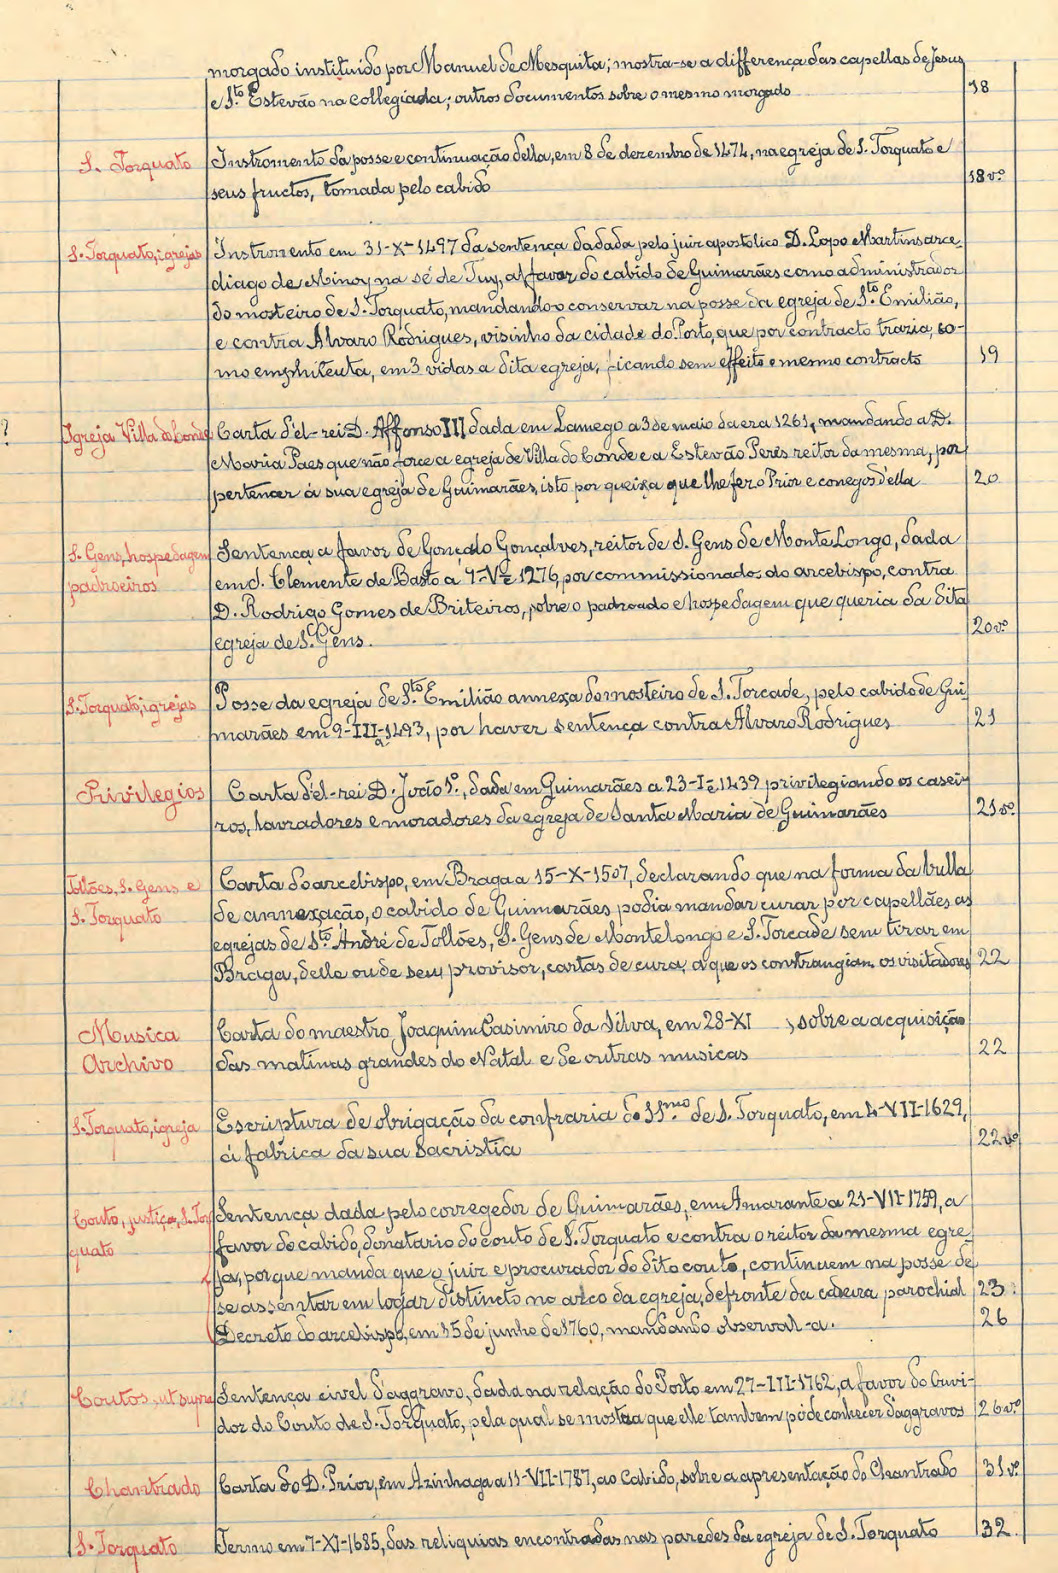 morgado instituido por Manuel de Mesquita; mostra-se a differença das capellas de Jesus
e S.to Estevão na collegiada; outros documentos sobre o mesmo morgado 18
S. Torquato Instromento da posse e continuação della, em 8 de dezembro de 1474, na egreja de S. Torquato e
seus fructos, tomada pelo cabido 18 vº
S. Torquato, igrejas Instromento em 31-X-1497 da sentença dadada pelo juiz apostolico D. Lopo Martins arce-
diago de Minoy na sé de Tuy, a favor do cabido de Guimarães como administrador
do mosteiro de S. Torquato, mandando-o conservar na posse da egreja de S.to Emilião,
e contra Alvaro Rodrigues, visinho da cidade do Porto, que por contracto trazia, co-
mo emphiteuta, em 3 vidas a dita egreja, ficando sem effeito o mesmo contracto 19
? Igreja Villa do Conde Carta d'el-rei D. Affonso III dada em Lamego a 3 de maio da era 1261, mandando a D.
Maria Paes que não force a egreja de Villa do Conde e a Estevão Peres reitor da mesma, por
pertencer á sua egreja de Guimarães, isto por queixa que lhe fez o Prior e conegos d'ella 20
S. Gens, hospedagem Sentença a favor de Gonçalo Gonçalves, reitor de S. Gens de Monte Longo, dada
padroeiros em S. Clemente de Basto a 7-V-e 1276, por commissionados do arcebispo, contra
D. Rodrigo Gomes de Briteiros, sobre o padroado e hospedagem que queria da dita
egreja de S. Gens. 20 vº
S. Torquato, igrejas Posse da egreja de S.to Emilião annexa do mosteiro de S. Torcade, pelo cabido de Gui-
marães em 9-III-1493, por haver sentença contra Alvaro Rodrigues 21
Privilegios Carta d'el-rei D. João 1º, dada em Guimarães a 23-I-e 1439 privilegiando os casei-
ros, lavradores e moradores da egreja de Santa Maria de Guimarães 21 vº
Tolões, S. Gens e Carta do arcebispo, em Braga a 15-X-1507, declarando que na forma da bulla
S. Torquato de annexação, o cabido de Guimarães podia mandar curar por capellães as
egrejas de S.to André de Tollões, S. Gens de Montelongo e S. Torcade sem tirar em
Braga, delle ou de seu provisor, cartas de cura, a que os constrangiam os visitadores 22
Musica Carta do maestro Joaquim Casimiro da Silva, em 28-XI , sobre a acquisição
Archivo das matinas grandes do Natal e de outras musicas 22
S. Torquato, igreja Escriptura de obrigação da confraria do SS.mo de S. Torquato, em 4-VII-1629,
á fabrica da sua Sacristia 22 vº
Couto, justiça, S. Tor- Sentença dada pelo corregedor de Guimarães, em Amarante a 21-VII-1759, a
quato favor do cabido, donatario do couto de S. Torquato e contra o reitor da mesma egre-
ja, porque manda que o juiz e procurador do dito couto, continuem na posse de
se assentar em logar distincto no arco da egreja, defronte da cadeira parochial 23
Decreto do arcebispo, em 15 de junho de 1760, mandando observal-a. 26
Coutos, ut supra Sentença civel d'aggravo, dada na relação do Porto em 27-III-1762, a favor do Ouvi-
dor do Couto de S. Torquato, pela qual se mostra que elle tambem póde conhecer d'aggravos 26 vº
Chantrado Carta do D. Prior, em Azinhaga a 11-VII-1787, ao Cabido, sobre a apresentação do Chantrado 31 vº
S. Torquato Termo em 7-XI-1685, das reliquias encontradas nas paredes da egreja de S. Torquato 32